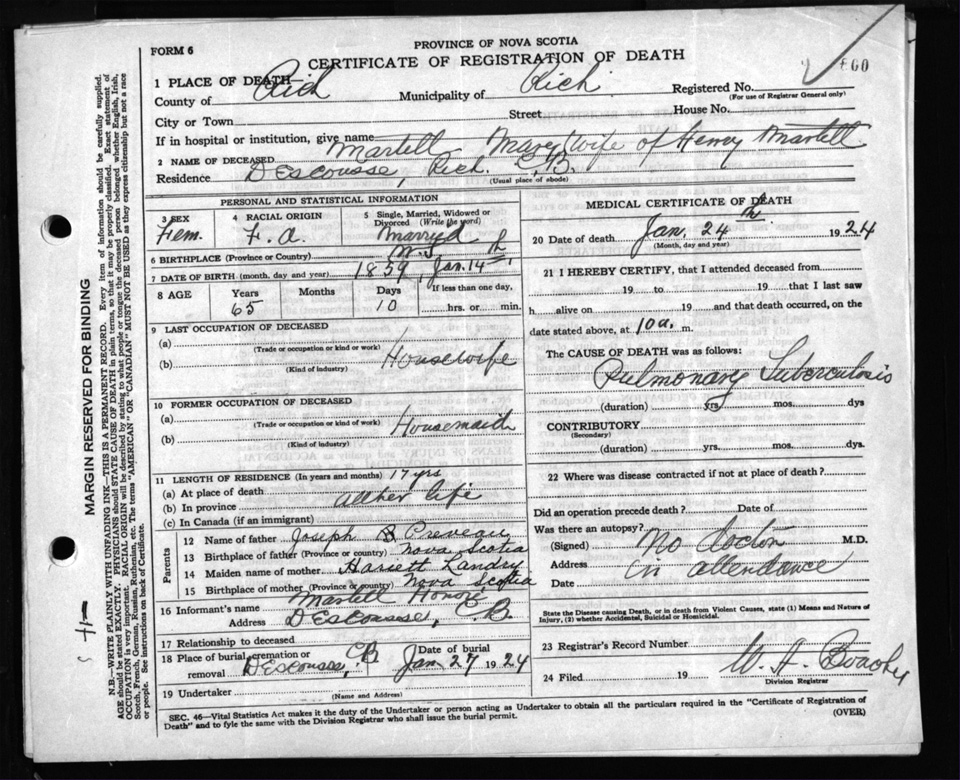 FORM 6
PROVINCE OF NOVA SCOTIA
CERTIFICATE OF REGISTRATION OF DEATH
1 PLACE OF DEATH
County of Rich Municipality of Rich Registered No.
(For use of Registrar General only)
City or Town Street House No.
If in hospital or institution, give name
2 NAME OF DECEASED Martell Mary wife of Henry Martell
Residence DEscousse, Rich. C.B.
(Usual place of abode)
PERSONAL AND STATISTICAL INFORMATION
3 SEX Fem.
4 RACIAL ORIGIN F. a.
5 Single, Married, Widowed or Divorced (Write the word) Marry'd
6 BIRTHPLACE (Province or Country) N.S.
7 DATE OF BIRTH (month, day and year) 1859, Jan. 14th,
8 AGE Years 65 Months Days 10 If less than one day, hrs. or min.
9 LAST OCCUPATION OF DECEASED
(a)
(Trade or occupation or kind or work)
(b) Housewife
(Kind of industry)
10 FORMER OCCUPATION OF DECEASED
(a)
(Trade or occupation or kind of work) Housemaid
(b)
(Kind of industry)
11 LENGTH OF RESIDENCE (In years and months) 17 yrs
(a) At place of death
(b) In province all her life
(c) In Canada (if an immigrant)
Parents
12 Name of father Joseph B. Preveau
13 Birthplace of father (Province or country) Nova Scotia
14 Maiden name of mother Landry
15 Birthplace of mother (Province or country) Nova Scotia
16 Informant's name Martell Honoré
Address DEscousse, C.B.
17 Relationship to deceased
18 Place of burial, cremation or removal DEscousse, CB Date of burial Jan 27 1924
19 Undertaker
(Name and Address)
MEDICAL CERTIFICATE OF DEATH
20 Date of death Jan. 24th 1924
(Month, day and year)
21 I HEREBY CERTIFY, that I attended deceased from
19 to 19 that I last saw
h alive on 19 and that death occurred, on
date stated above, at 10 a. m.
The CAUSE OF DEATH was as follows:
Pulmonary Tuberculosis
(duration) yrs mos. dys
CONTRIBUTORY
(Secondary)
(duration) yrs. mos. dys.
22 Where was disease contracted if not at place of death?
Did an operation precede death? Date of
Was there an autopsy?
(Signed) No doctor M.D.
Address in attendance
Date
State the Disease causing Death, or in death from Violent Causes, state (1) Means and Nature of Injury, (2) whether Accidental, Suicidal or Homicidal.
23 Registrar's Record Number
24 Filed 19
Division Registrar
SEC. 46—Vital Statistics Act makes it the duty of the Undertaker or person acting as Undertaker to obtain all the particulars required in the "Certificate of Registration of
Death" and to fyle the same with the Division Registrar who shall issue the burial permit.
(OVER)
MARGIN RESERVED FOR BINDING
N.B.—WRITE PLAINLY WITH UNFADING INK—THIS IS A PERMANENT RECORD. Every item of information should be carefully supplied.
AGE should be stated EXACTLY. PHYSICIANS should STATE CAUSE OF DEATH in plain terms, so that it may be properly classified. Exact statement of
OCCUPATION is very important. RACIAL ORIGIN will be described by stating to what people or tongue the deceased person belonged whether English, Irish,
Scotch, French, German, Russian, Ruthenian, etc. The terms "AMERICAN" OR "CANADIAN" MUST NOT BE USED as they express citizenship but not a race
or people. See instructions on back of Certificate.